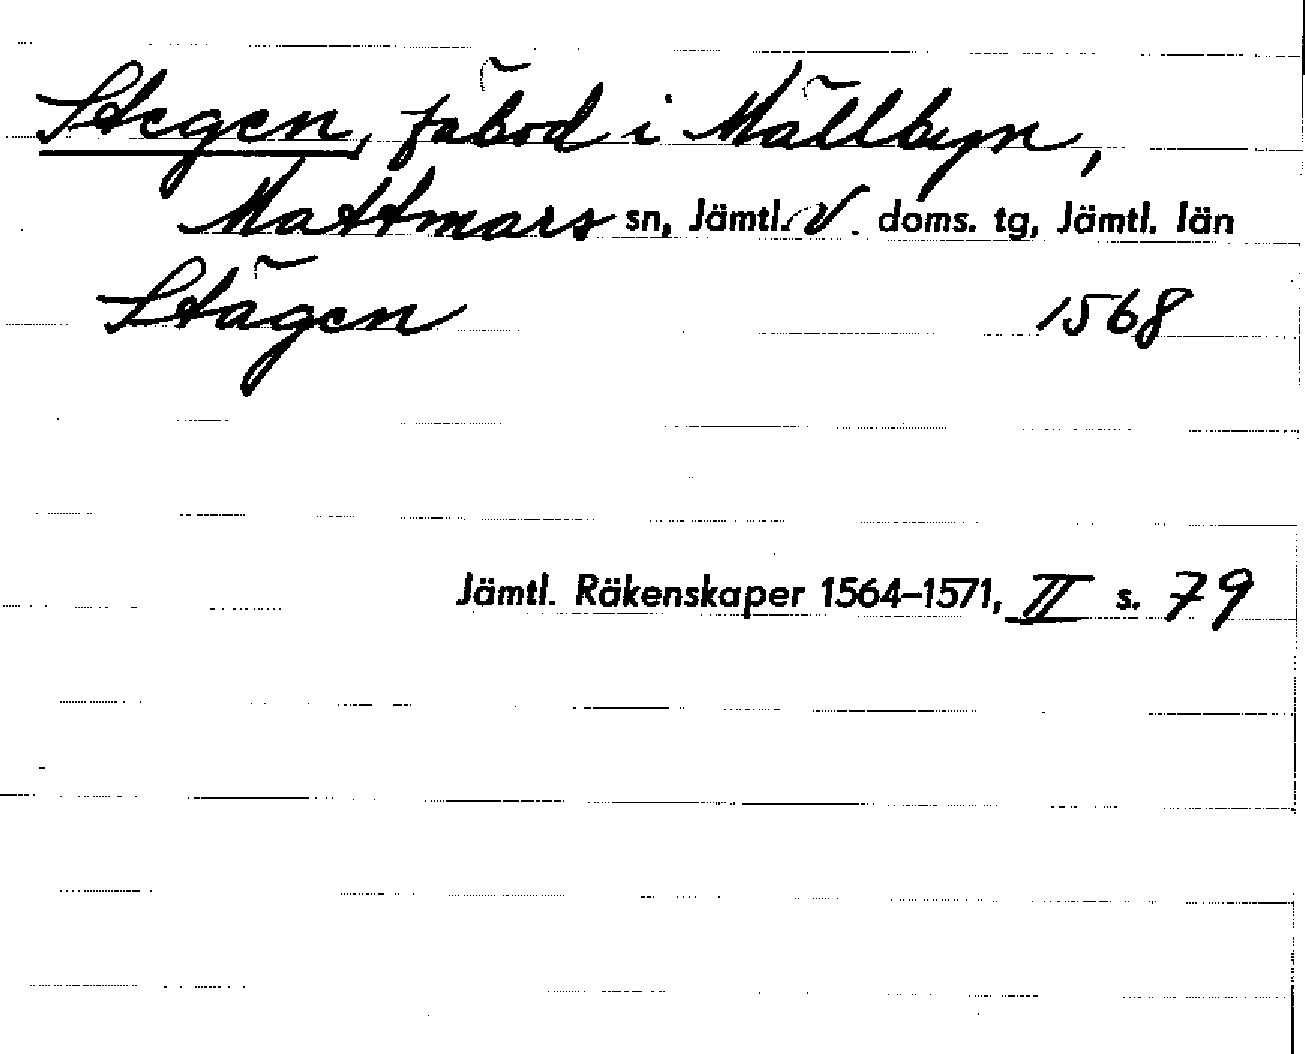 Stegen, fäbod i Mällbyn,
Mattmars sn, Jämtl. V. doms. tg, Jämtl. län
Stägen 1568
Jämtl. Räkenskaper 1564–1571, II s. 79